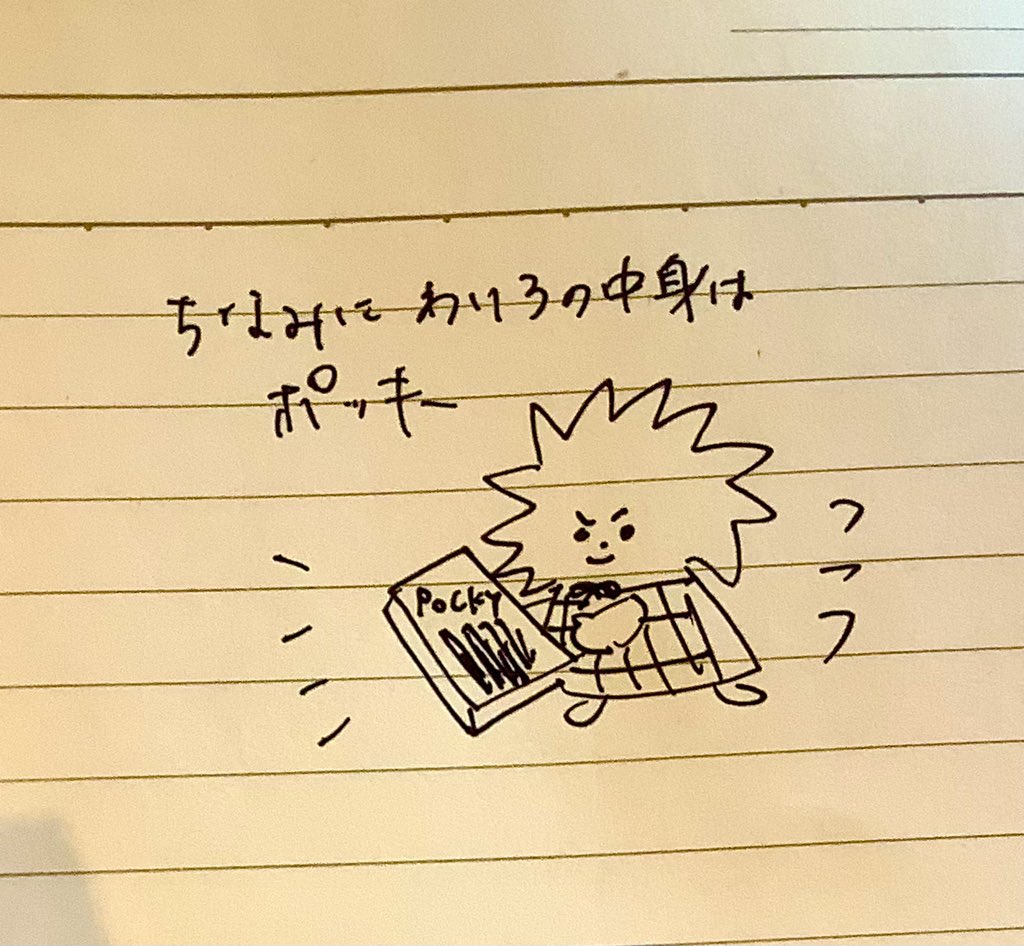 ちなみに わけろの中身は
ポッキー
Pocky